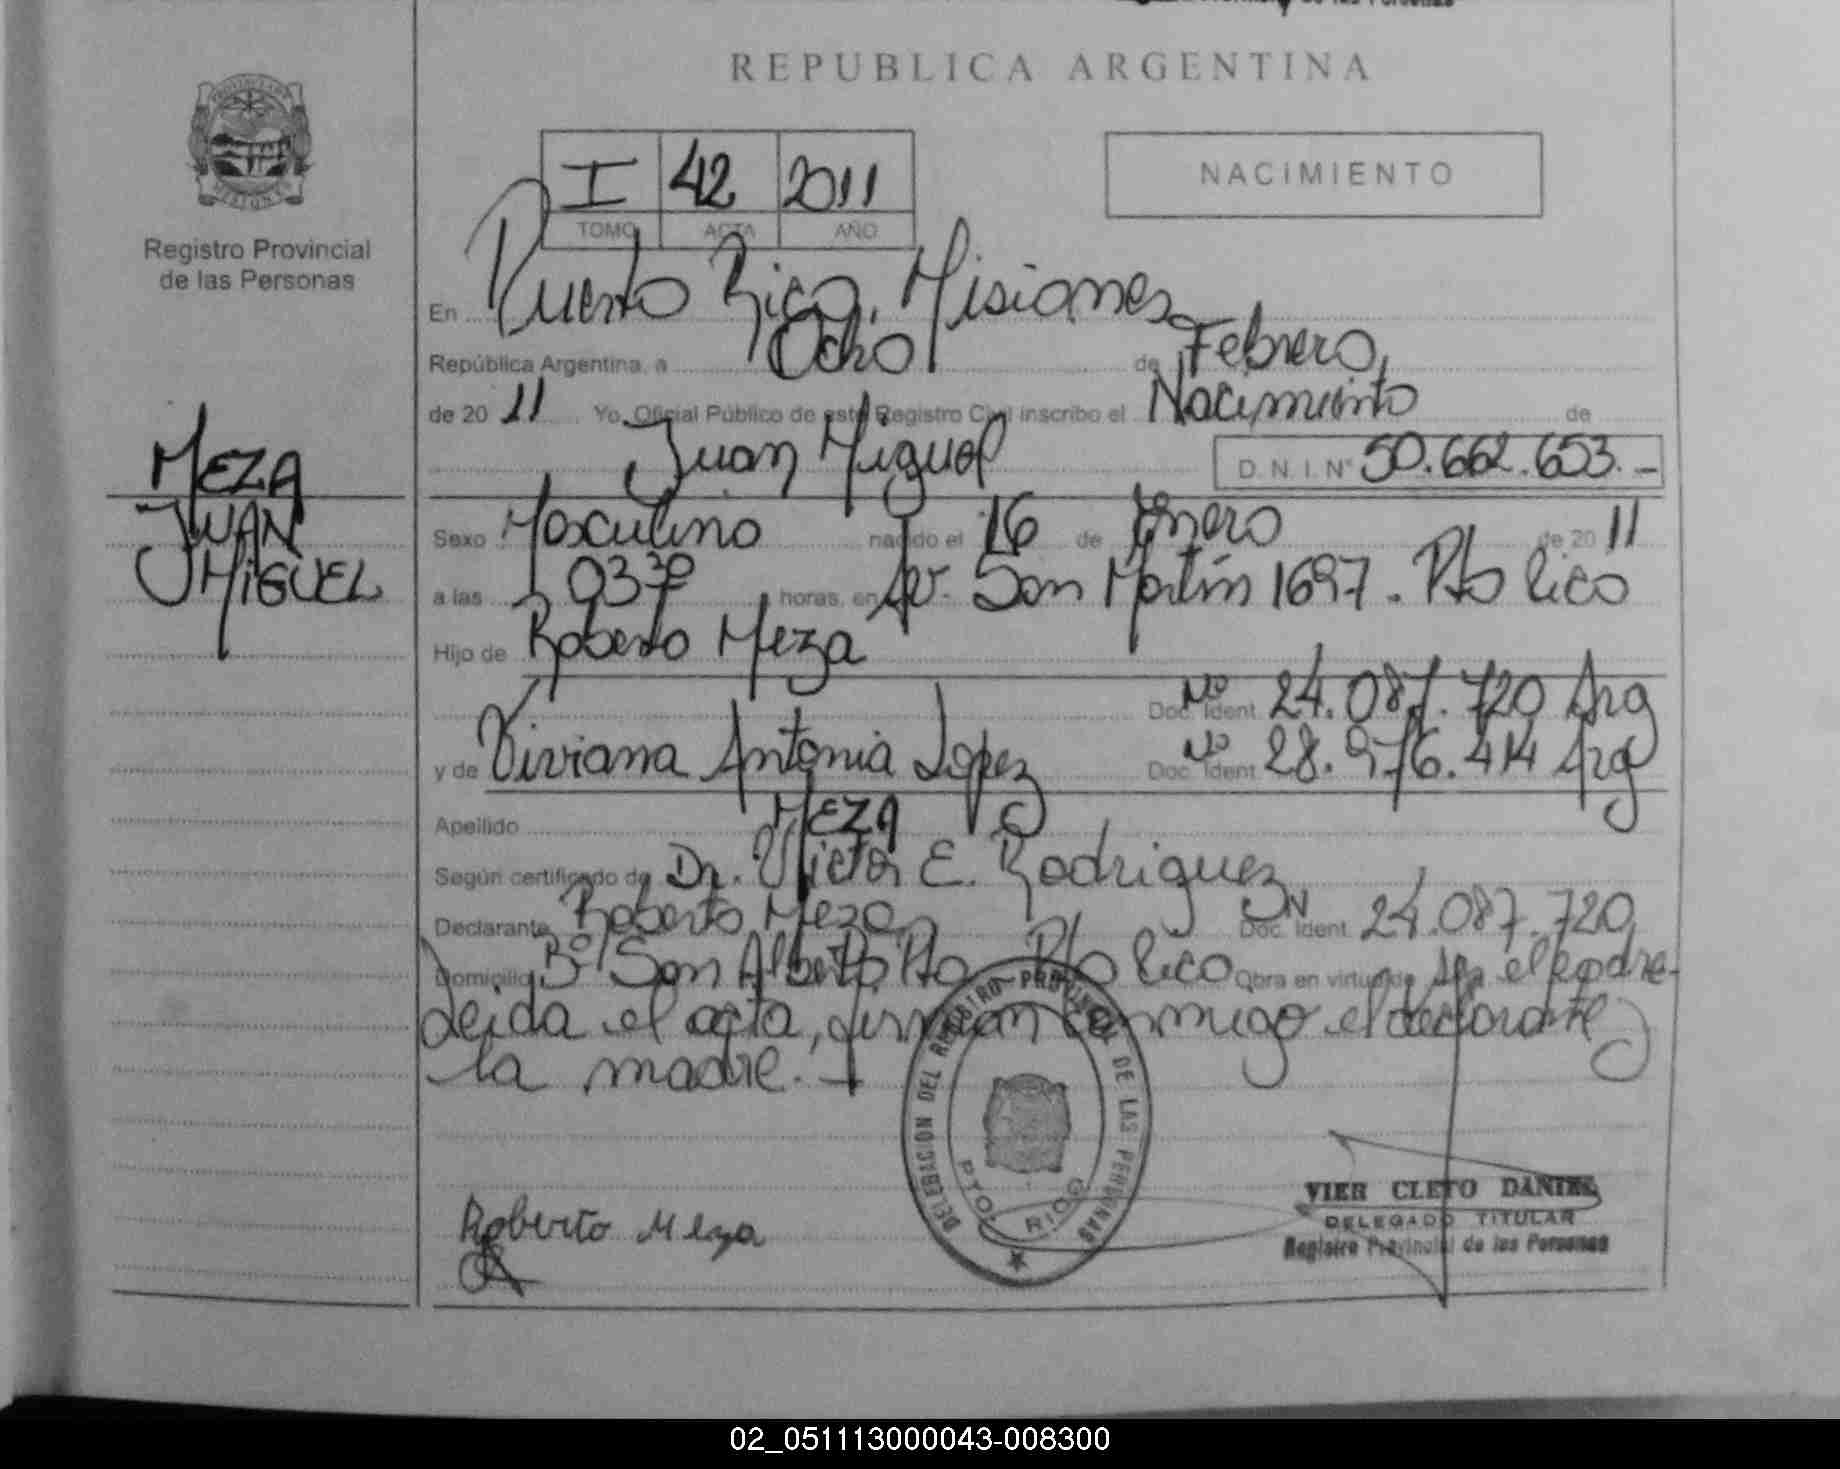 REPUBLICA ARGENTINA
Registro Provincial
de las Personas
I 42 2011
TOMO ACTA AÑO
NACIMIENTO
MEZA
JUAN
MIGUEL
En Puerto Rico, Misiones
República Argentina, a Ocho de Febrero,
de 20 11 Yo, Oficial Público de este Registro Civil inscribo el Nacimiento de
Juan Miguel D.N.I. Nº 50.662.653.-
Sexo Masculino nacido el 16 de Enero de 20 11
a las 03 30 horas, en Av. San Martín 1697. Pto Rico
Hijo de Roberto Meza
Doc. Ident. Nº 24.087.720 Arg
y de Viviana Antonia Lopez Doc. Ident. Nº 28.976.414 Arg
Apellido MEZA
Según certificado de Dr. Victor E. Rodriguez
Declarante Roberto Meza Doc. Ident. 24.087.720
Domicilio Bº San Alberto Pto Pto Rico Obra en virtud de ser el padre-
Leida el acta, firman conmigo el declarante y
la madre.-
DELEGACION DEL REGISTRO PROVINCIAL DE LAS PERSONAS
PTO. RICO
Roberto Meza
VIER CLETO DANIEL
DELEGADO TITULAR
Registro Provincial de las Personas
02_051113000043-008300